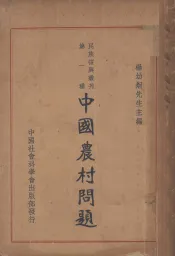 楊幼炯先生主編
民族復興叢書
第一種
中國農村問題
中國社會科學會出版部發行